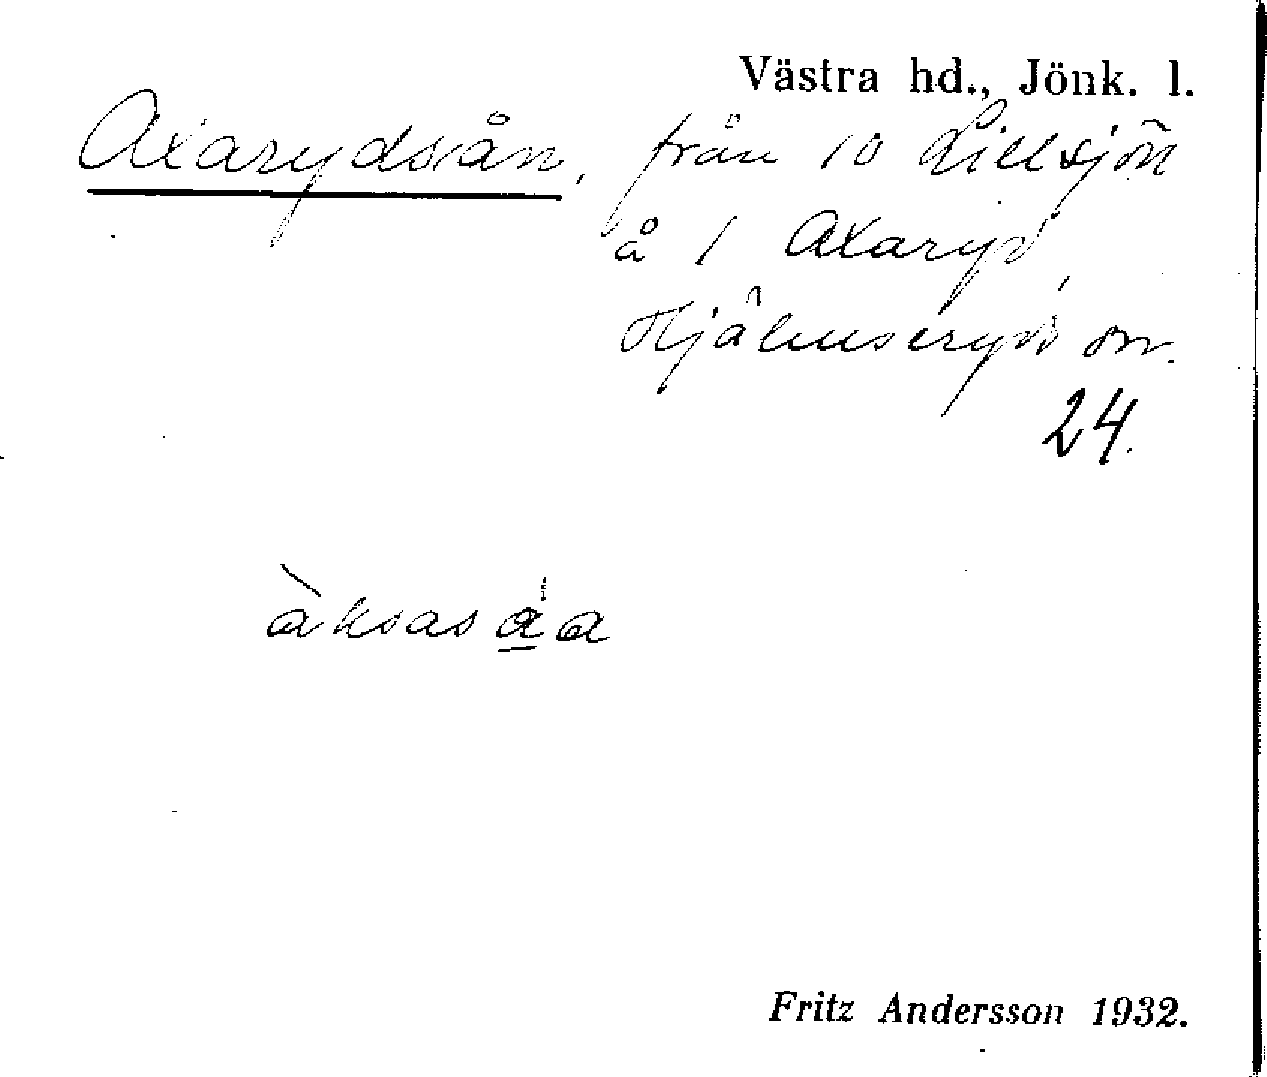 Västra hd., Jönk. l.
Axarydsån, från 10 Lillsjön
å 1 Axaryd,
Hjälmseryds sn.
24.
àksasa̲a
Fritz Andersson 1932.